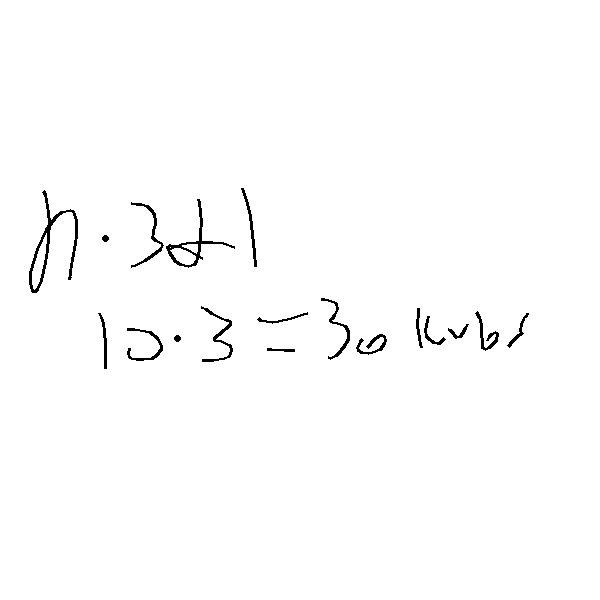 n·3+1
10·3=30 kubs